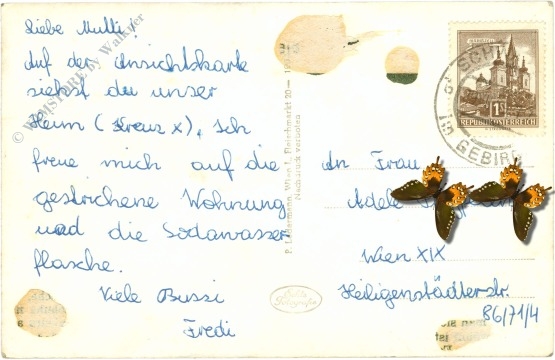 Liebe Mutti!
Auf der Ansichtskarte
siehst du unser
Heim (Kreuz x), Ich
freue mich auf die
gestrichene Wohnung
und die Sodawasser
flasche.
Viele Bussi
Fredi
P. Ledermann, Wien I, Fleischmarkt 20
Nachdruck verboten
REPUBLIK ÖSTERREICH
1 S
GEBIR
An Frau
Adele
Wien XIX
Heiligenstädterstr.
86/71/4